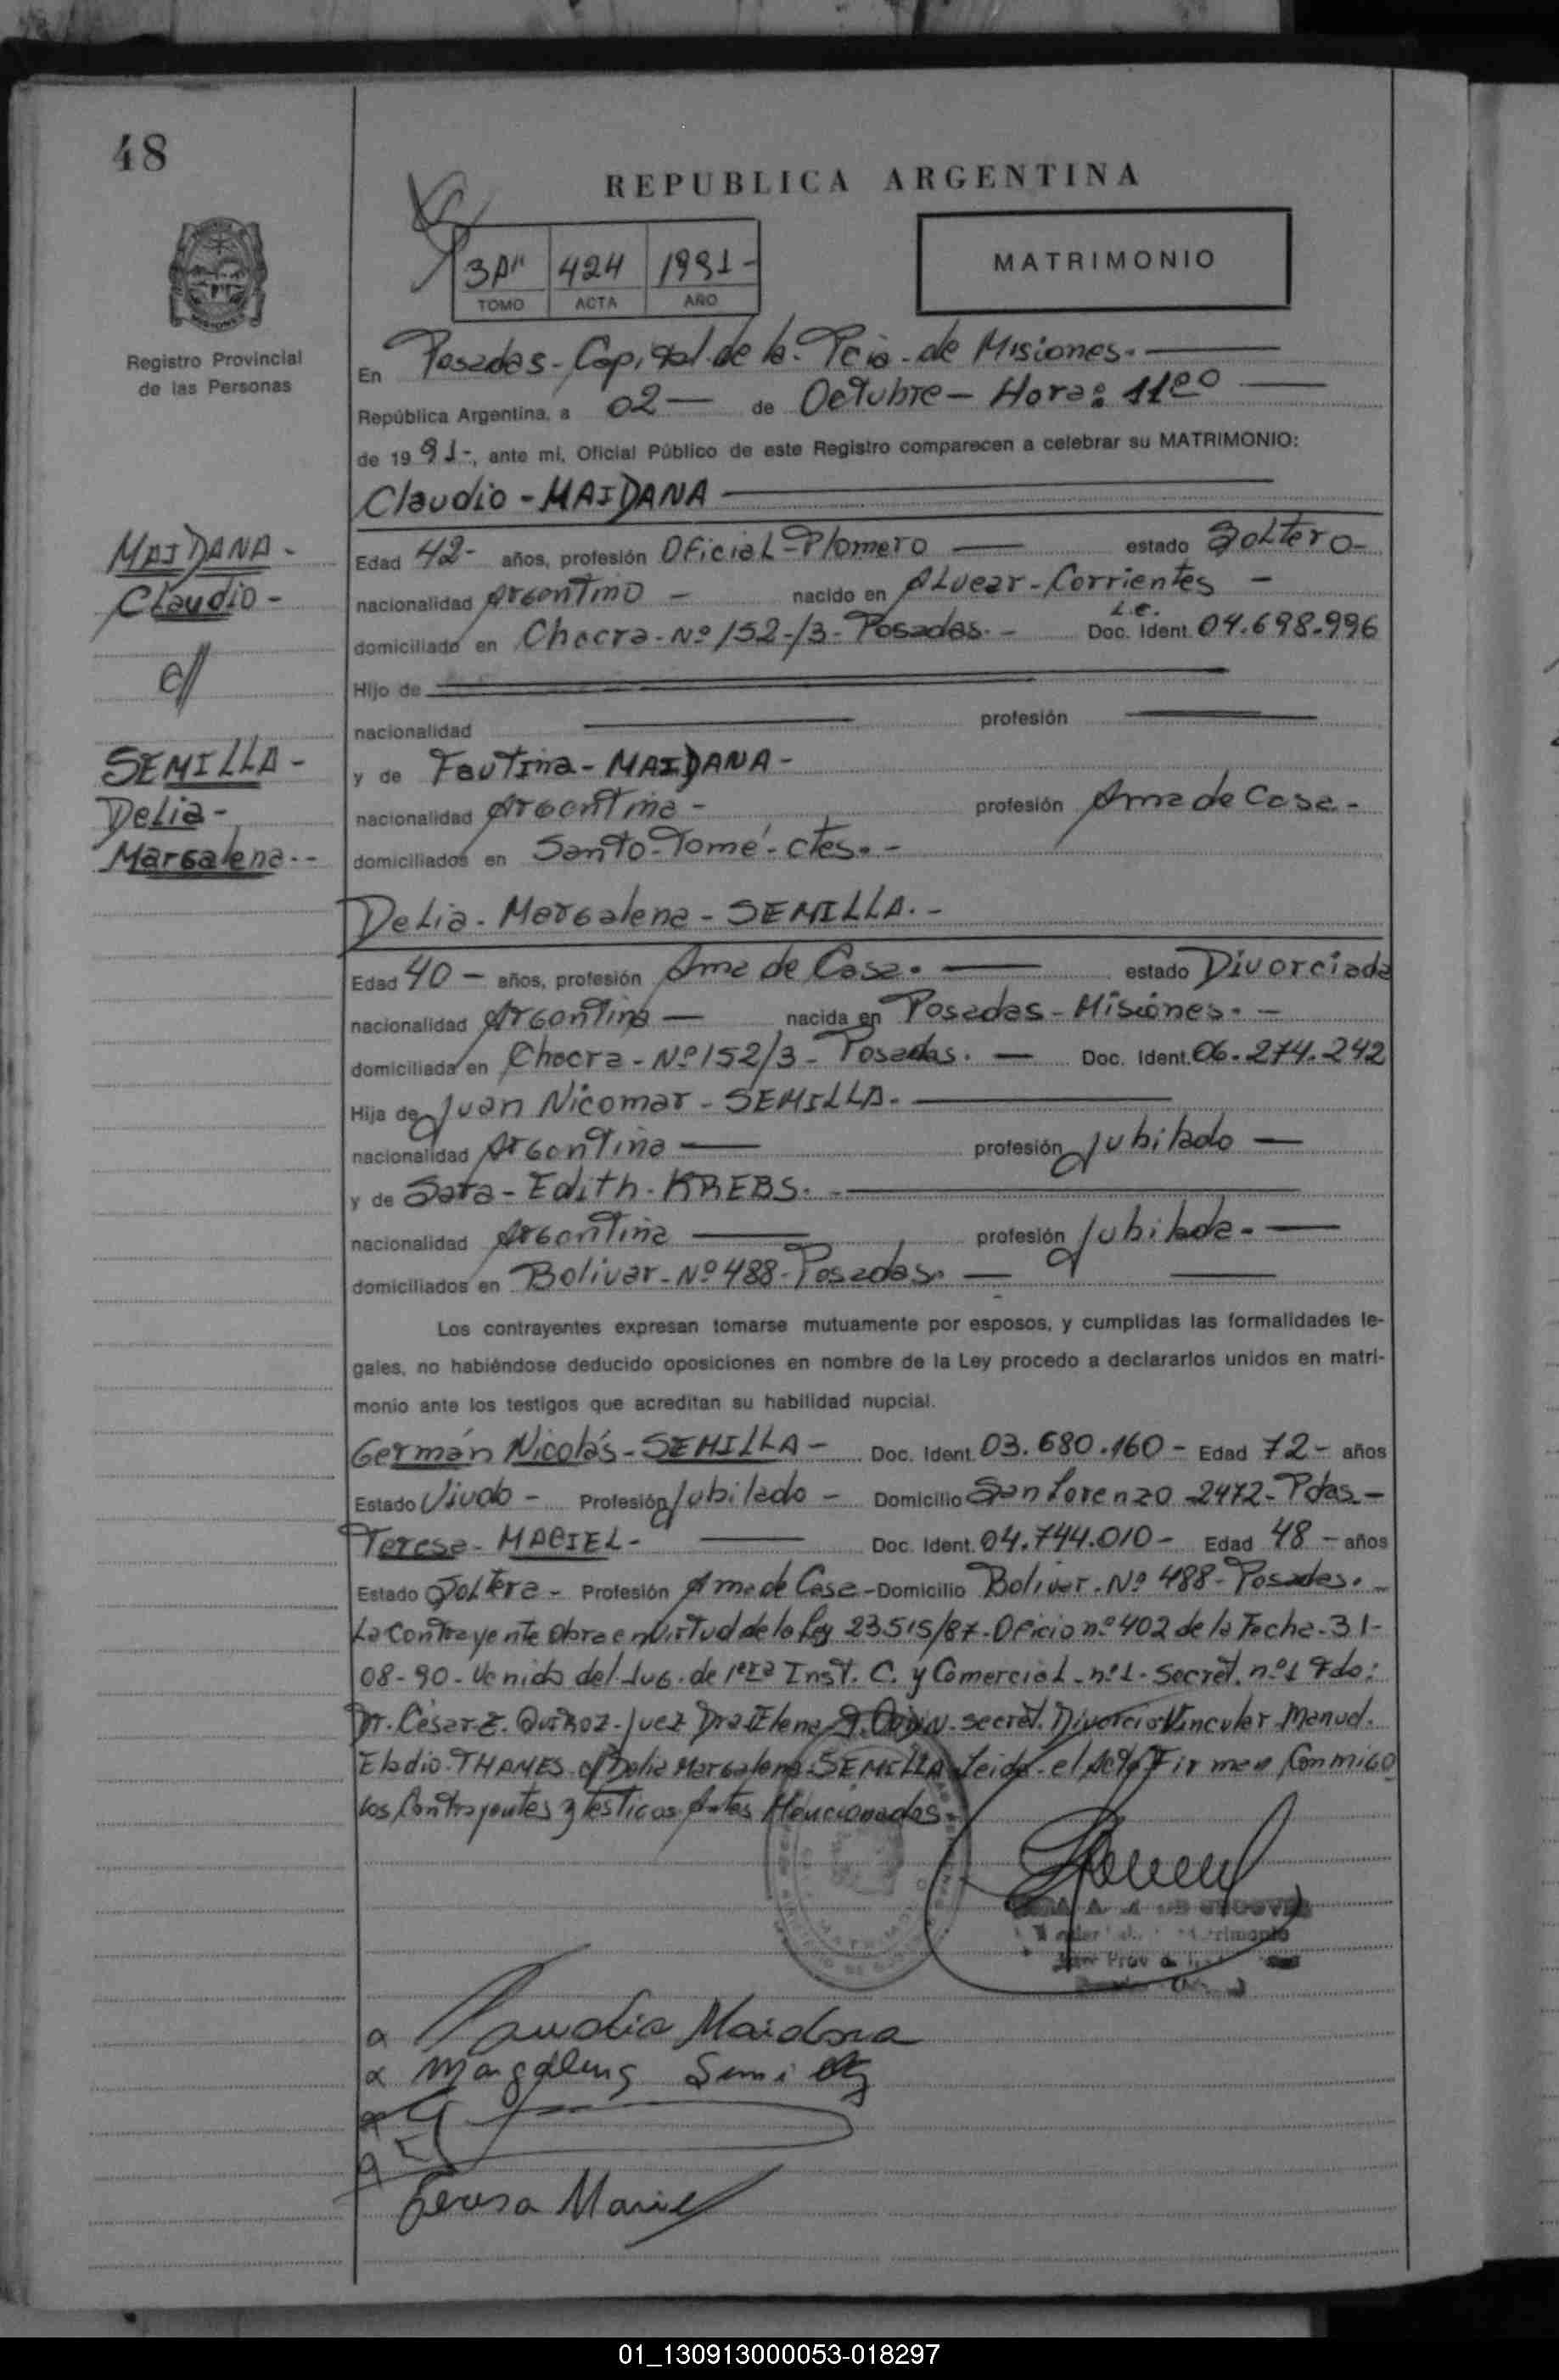 48
REPUBLICA ARGENTINA
3A" 424 1991-
TOMO ACTA AÑO
MATRIMONIO
Registro Provincial
de las Personas
En Posadas-Capital de la Pcia-de Misiones.-
República Argentina, a 02 — de Octubre — Hora: 11:00 —
de 19 91-, ante mí, Oficial Público de este Registro comparecen a celebrar su MATRIMONIO:
Claudio - MAIDANA
MAIDANA -
Claudio -
c/
SEMILLA -
Delia -
Margalena.--
Edad 42- años, profesión Oficial-Plomero — estado Soltero-
nacionalidad Argentino - nacido en Alvear-Corrientes -
L.E.
domiciliado en Chacra-Nº 152-/3-Posadas.- Doc. Ident. 04.698.996
Hijo de
nacionalidad — profesión —
y de Fautina - MAIDANA -
nacionalidad Argentina - profesión Ama de Casa.-
domiciliados en Santo-Tomé-Ctes.-
Delia-Margalena-SEMILLA.-
Edad 40 - años, profesión Ama de Casa. — estado Divorciada
nacionalidad Argentina — nacida en Posadas-Misiones.-
domiciliada en Chacra-Nº152/3-Posadas. — Doc. Ident. 06.274.242
Hija de Juan Nicomar - SEMILLA.
nacionalidad Argentina — profesión Jubilado —
y de Sara-Edith-KREBS.-
nacionalidad Argentina — profesión Jubilada.-
domiciliados en Bolivar-Nº488-Posadas. —
Los contrayentes expresan tomarse mutuamente por esposos, y cumplidas las formalidades le-
gales, no habiéndose deducido oposiciones en nombre de la Ley procedo a declararlos unidos en matri-
monio ante los testigos que acreditan su habilidad nupcial.
Germán Nicolás-SEMILLA- Doc. Ident. 03.680.160- Edad 72- años
Estado Viudo- Profesión Jubilado - Domicilio San Lorenzo 2472-Pdas-
Teresa-MACIEL- Doc. Ident. 04.744.010- Edad 48 - años
Estado Soltera- Profesión Ama de Casa-Domicilio Bolivar-Nº 488-Posadas.
La Contrayente Obra en Virtud de la Ley 23.515/87-Oficio nº 402 de la Fecha-31-
08-90-Venido del-Jug.de 1era Inst. C. y Comercial-nº1-Secret.nº1 Fdo:
Dr. César-E.-Quiroz-Juez Dra.Elena Secret. Divorcio Vincular Manud.
Eladio-THAMES c/Delia Margalena-SEMILLA-Leida el Acta Firman Conmigo
los Contrayentes y testigos Antes Mencionados-
Claudio Maidana
Magdalena Semilla
Teresa Maciel
01_130913000053-018297